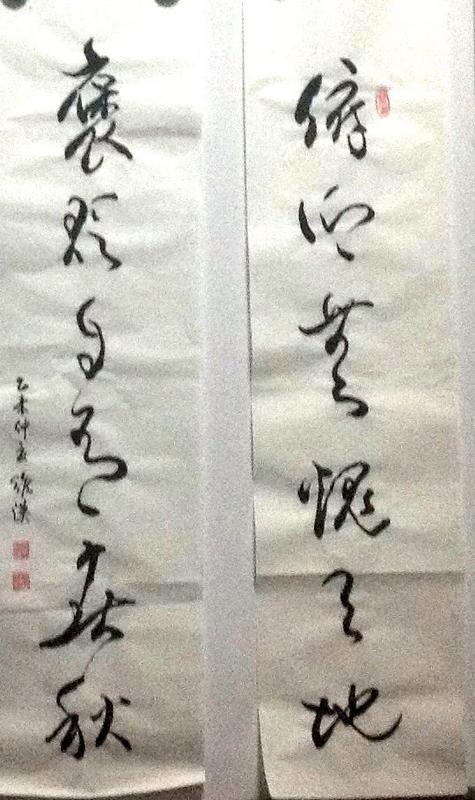 俯仰无愧天地
褒贬自有春秋
乙未仲夏